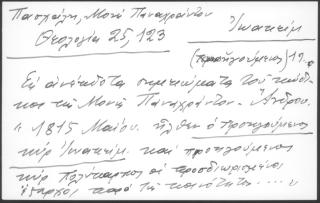 Πασχάλη, Μονή Παναχράντου
Θεολογία 25, 123
Ἰωακείμ
(προηγούμενος) 19
Ἐξ ἀνεκδότου σημειώματος τοῦ κώδι-
κος τῆς Μονῆς Παναχράντου. Ἄνδρου.
« 1815 Μαΐου. ἦλθεν ὁ προηγούμενος
κύρ Ἰωακείμ. καί προηγούμενος
κύρ Πολύκαρπος οἱ προσδιωρισμένοι
ἔξαρχοι παρά τῆς κοινότητος .... »